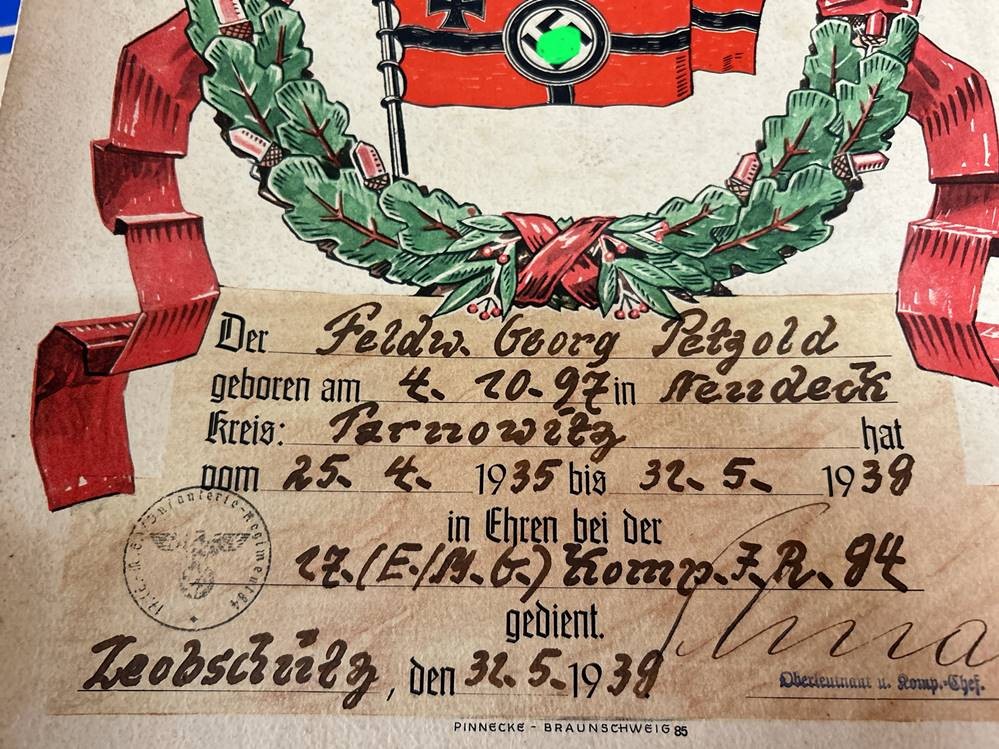 Der Feldw. Georg Petzold
geboren am 4. 10. 97 in Neudeck
Kreis: Tarnowitz hat
vom 25. 4. 1935 bis 31. 5. 1938
in Ehren bei der
17. (E/M.G.) Komp. J. R. 84
gedient.
Leobschütz, den 31. 5. 1938
Oberleutnant u. Komp.-Chef.
PINNECKE - BRAUNSCHWEIG 85